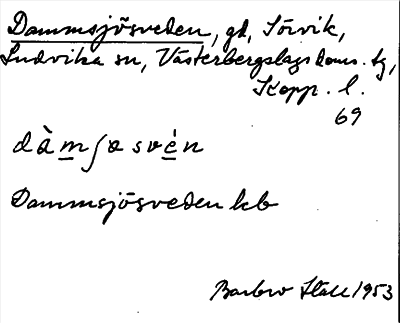 Dammsjösveden, gd, Sörvik,
Ludvika sn, Västerbergslags doms. tg,
Kopp. l.
69
dàm̲ʃɑsvė̲n
Dammsjösveden kb
1953